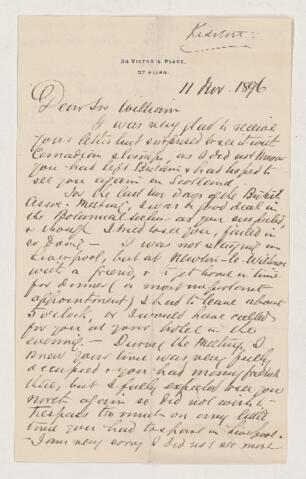 Kidston:
24 VICTORIA PLACE,
STIRLING.
11 Nov. 1896
Dear Sir William
I was very glad to receive
your letter but surprised to see it with
Canadian stamps, as I did not know
you had left Britain & had hoped to
see you again in Scotland.
On the last few days of the British
Assoc. Meeting, I was a good deal in
the Botanical Section as you suspected,
& though I tried to see you, failed in
so doing — I was not staying in
Liverpool, but at Newton-le-Willows
with a friend, & to get home in time
for Dinner (a most important
appointment) I had to leave about
5 o'clock, or I would have called
for you at your hotel in the
evening — During the Meeting, I
knew your time was very fully
occupied & you had many friends
there, but I fully expected to see you
north again so did not wish to
trespass too much on any little
time you had to spend in Liverpool —
I am very sorry I did not see more